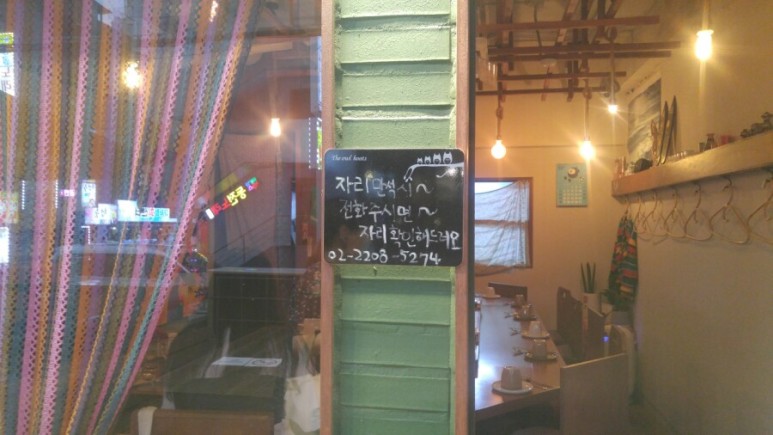 The owl hoots
자리 만석시~
전화주시면~
자리확인해드려요
02-2203-5274